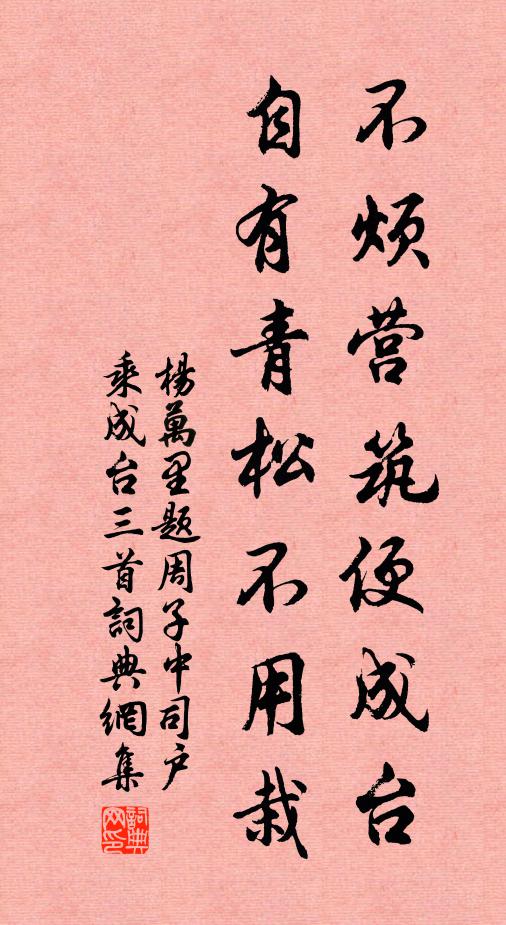 不烦营筑便成台
自有青松不用栽
楊萬里题周子中司户
乘成台三首詞典網集
詞典
网印